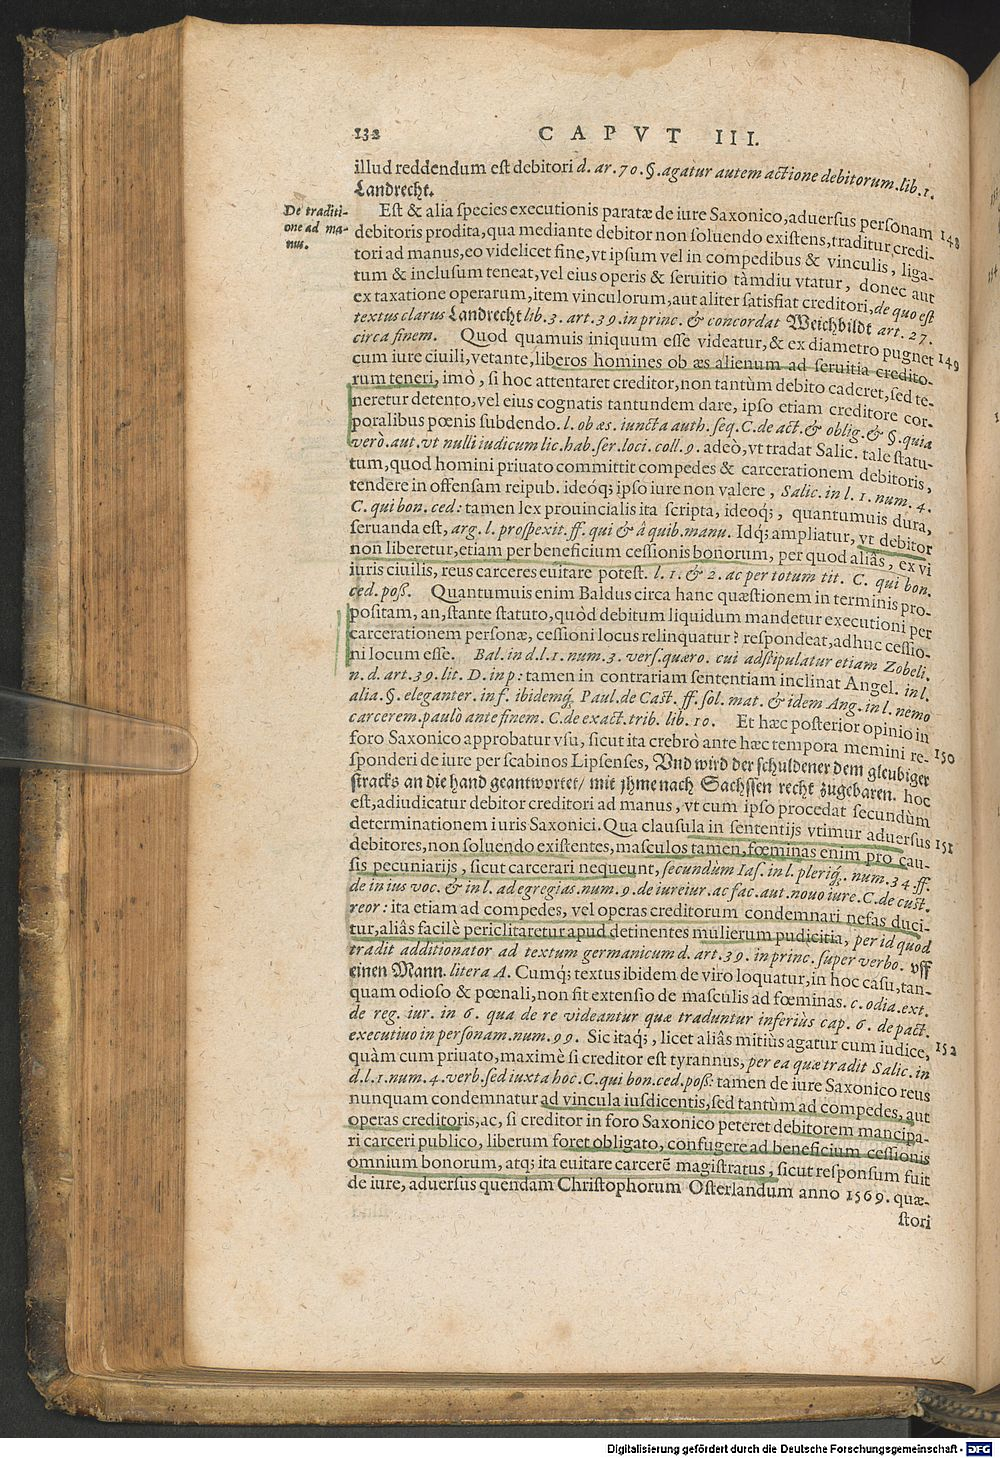 132 CAPVT III.
illud reddendum est debitori d. ar. 70. §. agatur autem actione debitorum. lib. 1.
Landrecht.
De traditi-
one ad ma-
nus.
Est & alia species executionis paratæ de iure Saxonico, aduersus personam 148
debitoris prodita, qua mediante debitor non soluendo existens, traditur credi-
tori ad manus, eo videlicet fine, vt ipsum vel in compedibus & vinculis, liga-
tum & inclusum teneat, vel eius operis & seruitio tàmdiu vtatur, donec aut
ex taxatione operarum, item vinculorum, aut aliter satisfiat creditori, de quo est
textus clarus Landrecht lib. 3. art. 39. in princ. & concordat Weichbildt art. 27.
circa finem. Quod quamuis iniquum esse videatur, & ex diametro pugnet 149
cum iure ciuili, vetante, liberos homines ob æs alienum ad seruitia credito-
rum teneri, imò, si hoc attentaret creditor, non tantùm debito caderet, sed te-
neretur detento, vel eius cognatis tantundem dare, ipso etiam creditore cor-
poralibus pœnis subdendo. l. ob æs. iuncta auth. seq. C. de act. & oblig. & §. quia
verò. aut. vt nulli iudicum lic. hab. ser. loci. coll. 9. adeò, vt tradat Salic. tale statu-
tum, quod homini priuato committit compedes & carcerationem debitoris,
tendere in offensam reipub. ideóq; ipso iure non valere, Salic. in l. 1. num. 4.
C. qui bon. ced: tamen lex prouincialis ita scripta, ideoq;, quantumuis dura,
seruanda est, arg. l. prospexit. ff. qui & â quib. manu. Idq; ampliatur, vt debitor
non liberetur, etiam per beneficium cessionis bonorum, per quod aliâs, ex vi
iuris ciuilis, reus carceres euitare potest. l. 1. & 2. ac per totum tit. C. qui bon.
ced. poss. Quantumuis enim Baldus circa hanc quæstionem in terminis pro-
positam, an, stante statuto, quòd debitum liquidum mandetur executioni per
carcerationem personæ, cessioni locus relinquatur? respondeat, adhuc cessio-
ni locum esse. Bal. in d. l. 1. num. 3. vers. quæro. cui adstipulatur etiam Zobeli.
n. d. art. 39. lit. D. in p: tamen in contrariam sententiam inclinat Angel. in l.
alia. §. eleganter. in f. ibidemq́ Paul. de Cast. ff. sol. mat. & idem Ang. in l. nemo
carcerem. paulò ante finem. C. de exact. trib. lib. 10. Et hæc posterior opinio in
foro Saxonico approbatur vsu, sicut ita crebrò ante hæc tempora memini re- 150
sponderi de iure per scabinos Lipsenses, Vnd wird der schuldener dem gleubiger
stracks an die hand geantwortet/ mit jhme nach Sachssen recht zugebaren. hoc
est, adiudicatur debitor creditori ad manus, vt cum ipso procedat secundùm
determinationem iuris Saxonici. Qua clausula in sententijs vtimur aduersus 151
debitores, non soluendo existentes, masculos tamen, fœminas enim pro cau-
sis pecuniarijs, sicut carcerari nequeunt, secundùm Ias. in l. pleriq́;. num. 34 ff.
de in ius voc. & in l. ad egregias. num. 9. de iureiur. ac fac. aut. nouo iure. C. de cust.
reor: ita etiam ad compedes, vel operas creditorum condemnari nefas duci-
tur, aliâs facilè periclitaretur apud detinentes mulierum pudicitia, per id quod
tradit additionator ad textum germanicum d. art. 39. in princ. super verbo. vff
einen Mann. litera A. Cumq; textus ibidem de viro loquatur, in hoc casu, tan-
quam odioso & pœnali, non fit extensio de masculis ad fœminas. c. odia. ext.
de reg. iur. in 6. qua de re videantur quæ traduntur inferiùs cap. 6. de pact.
executiuo in personam. num. 99. Sic itaq;, licet aliâs mitiùs agatur cum iudice, 152
quàm cum priuato, maximè si creditor est tyrannus, per ea quæ tradit Salic. in
d. l. 1. num. 4. verb. sed iuxta hoc. C. qui bon. ced. poss: tamen de iure Saxonico reus
nunquam condemnatur ad vincula iusdicentis, sed tantùm ad compedes, aut
operas creditoris, ac, si creditor in foro Saxonico peteret debitorem mancipa-
ri carceri publico, liberum foret obligato, confugere ad beneficium cessionis
omnium bonorum, atq; ita euitare carcerẽ magistratus, sicut responsum fuit
de iure, aduersus quendam Christophorum Osterlandum anno 1569. quæ-
stori
Digitalisierung gefördert durch die Deutsche Forschungsgemeinschaft - DFG